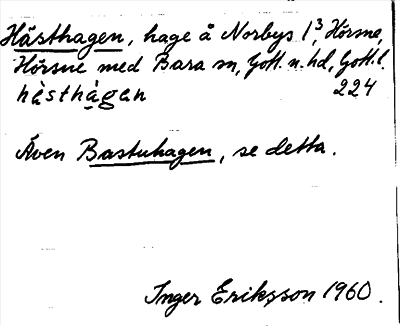 Hästhagen, hage å Norbys 1³, Hörsne,
Hörsne med Bara sn, Gotl. n. hd, Gotl. l.
hàsthàgan 224
Även Bastuhagen, se detta.
Inger Eriksson 1960.